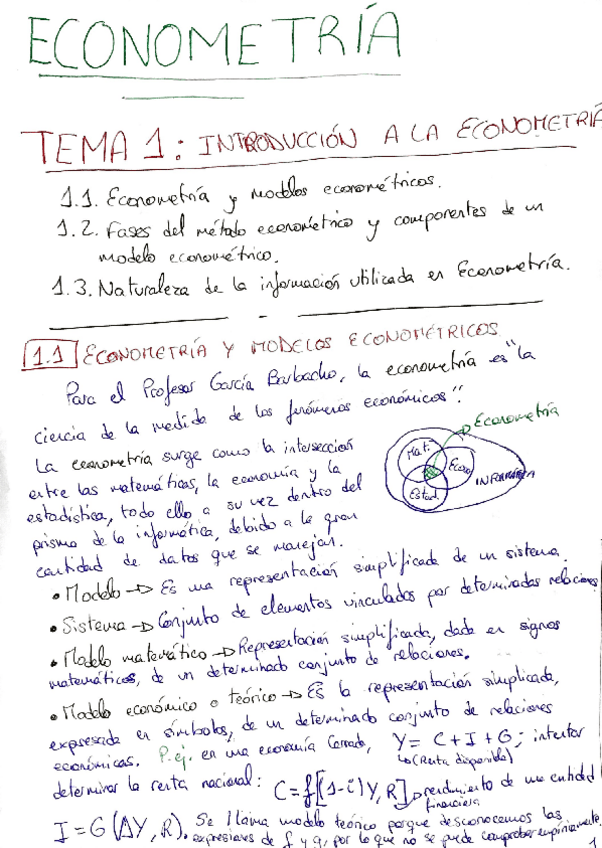 ECONOMETRÍA
TEMA 1: INTRODUCCIÓN A LA ECONOMETRÍA
1.1. Econometría y modelos econométricos.
1.2. Fases del método econométrico y componentes de un
modelo econométrico.
1.3. Naturaleza de la información utilizada en Econometría.
1.1 ECONOMETRÍA Y MODELOS ECONOMÉTRICOS
Para el Profesor García Barbacho, la econometría es "la
ciencia de la medida de los fenómenos económicos".
Econometría
La econometría surge como la intersección
entre las matemáticas, la economía y la
estadística, todo ello a su vez dentro del
prisma de la informática, debido a la gran
cantidad de datos que se manejan.
Mat.
Econ
Estad.
INFORMÁTICA
• Modelo → Es una representación simplificada de un sistema.
• Sistema → Conjunto de elementos vinculados por determinadas relaciones
• Modelo matemático → Representación simplificada, dada en signos
matemáticos, de un determinado conjunto de relaciones.
• Modelo económico o teórico → Es la representación simplicada,
expresada en símbolos, de un determinado conjunto de relaciones
económicas. P.ej. en una economía cerrada, Y = C + I + G; intentar
(Renta disponible)
determinar la renta nacional: C = f[(1-t)Y, R] → rendimiento de una entidad
financiera
I = G (ΔY, R). Se llama modelo teórico porque desconocemos las
expresiones de f y g, por lo que no se puede comprobar empíricamente.
1